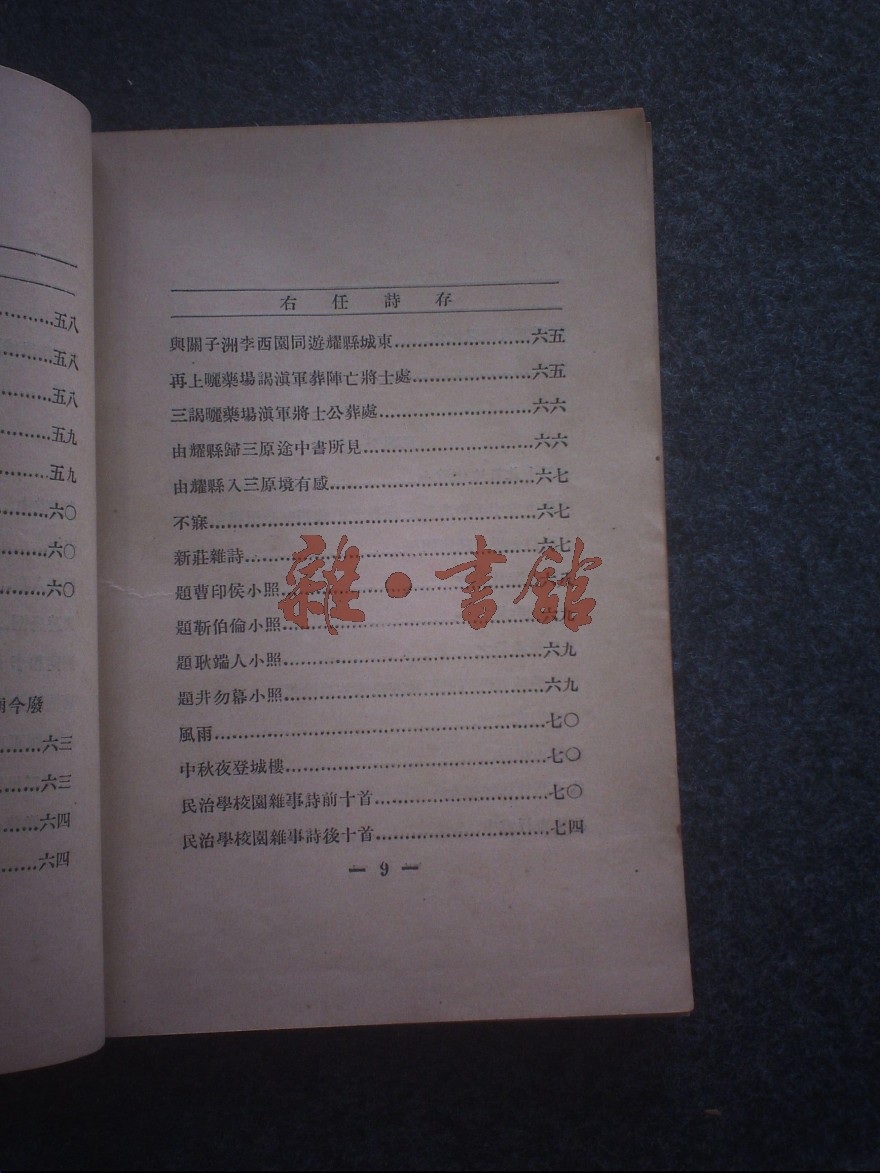 五八
五八
五八
五九
五九
六〇
六〇
六〇
今廢
六三
六三
六四
六四
右任詩存
與關子洲李西園同遊耀縣城東……六五
再上曬藥場謁滇軍葬陣亡將士處……六五
三謁曬藥場滇軍將士公葬處……六六
由耀縣歸三原途中書所見……六六
由耀縣入三原境有感……六七
不寐……六七
新莊雜詩……六七
題曹印侯小照……
題靳伯倫小照……六九
題耿端人小照……六九
題井勿幕小照……六九
風雨……七〇
中秋夜登城樓……七〇
民治學校園雜事詩前十首……七〇
民治學校園雜事詩後十首……七四
— 9 —
雜·書館